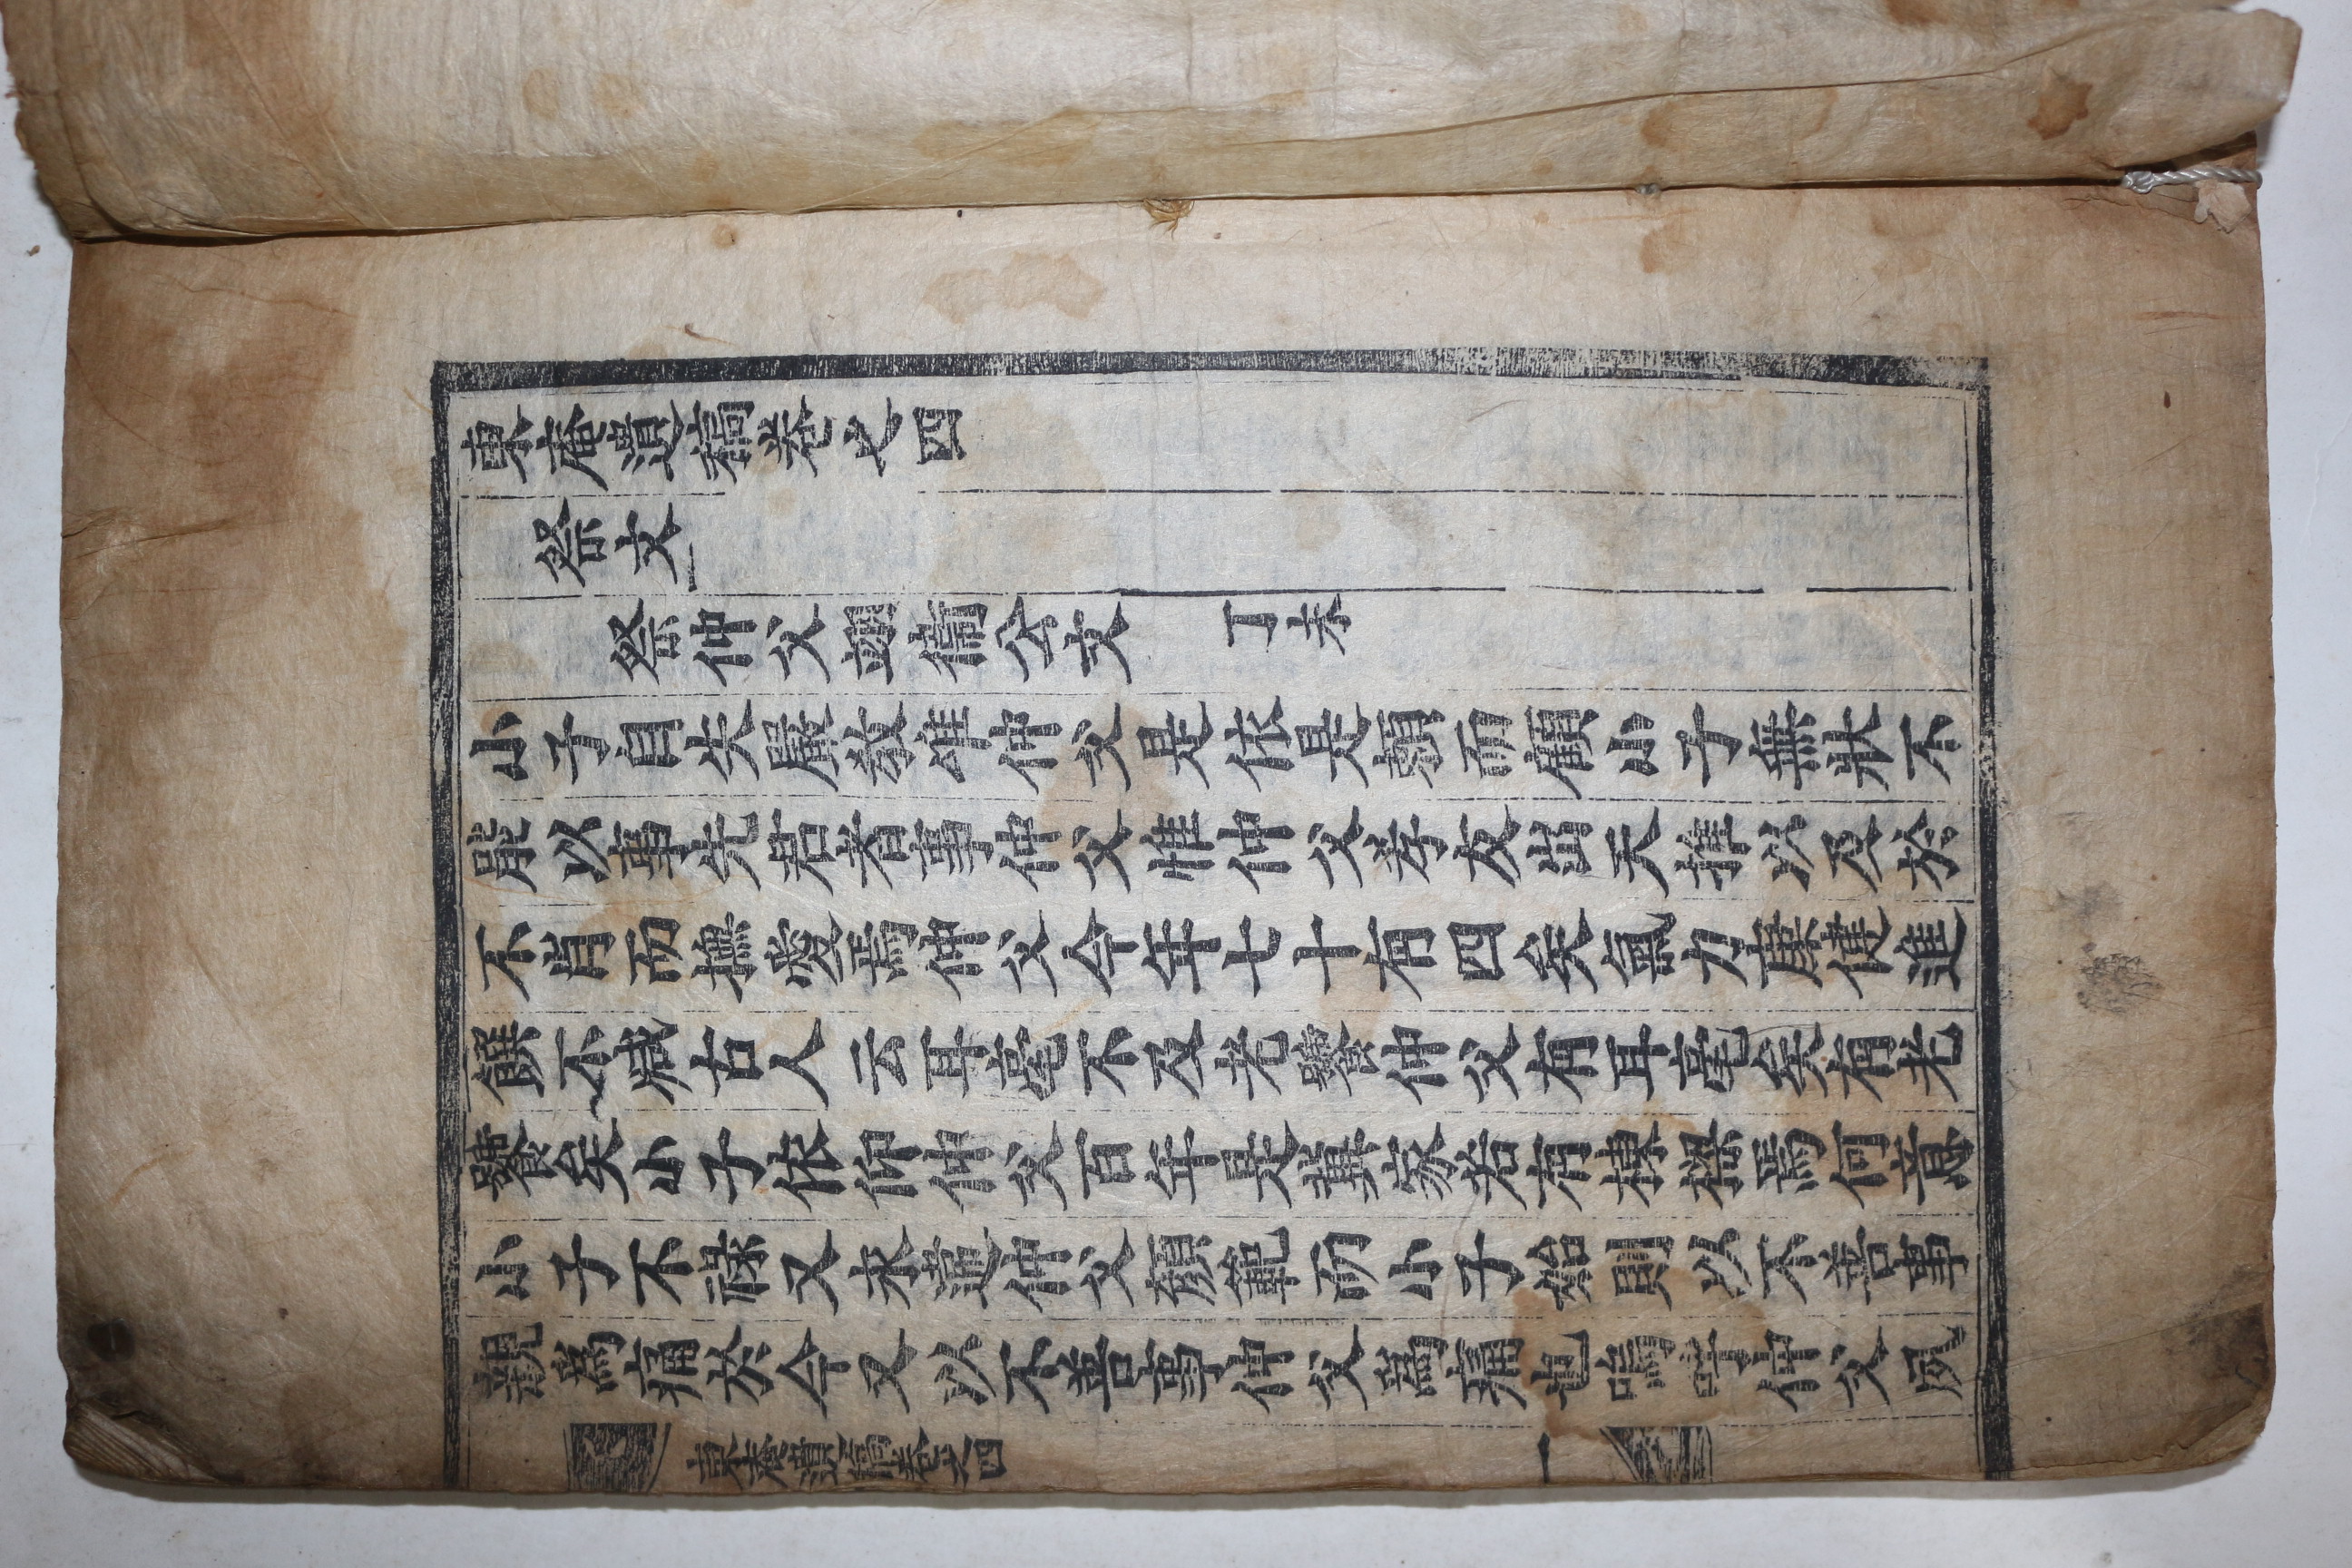 東庵遺稿卷之四
祭文
祭仲父翊衞公文 丁未
小子自失嚴敎唯仲父是依是賴而顧小子無狀不
能以事先君者事仲父惟仲父孝友出天推以及於
不肖而撫愛焉仲父今年七十有四矣氣力康健進
饌不减古人云耳毫不及老饕仲父有耳毫矣有老
饕矣小子依仰仲父百年是冀家若有棟樑焉何意
小子不祿又永違仲父顏範而小子始則以不善事
親爲痛於今又以不善事仲父爲痛也嗚呼仲父夙
東庵遺稿卷之四 一